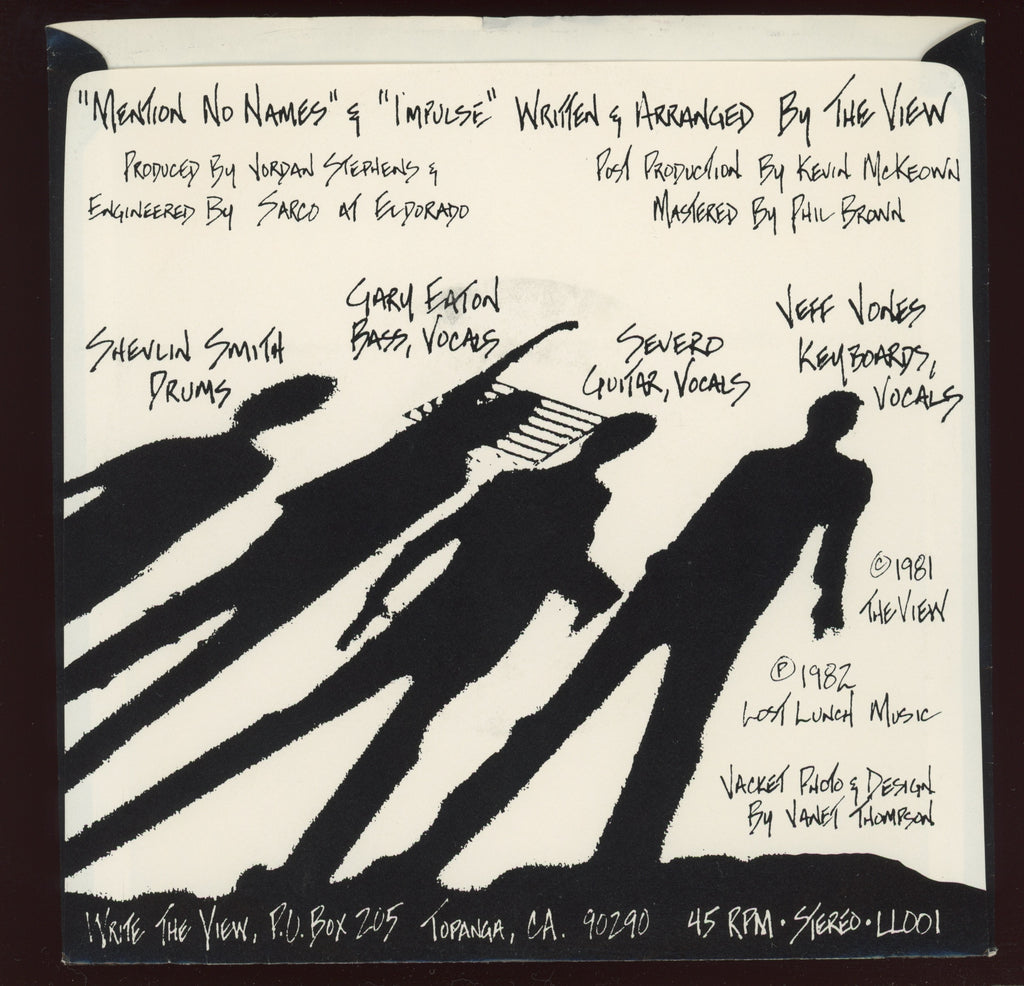 "Mention No Names" & "Impulse" Written & Arranged By The View
Produced By Jordan Stephens &
Engineered By Sarco at Eldorado
Post Production By Kevin McKeown
Mastered By Phil Brown
Shevlin Smith
Drums
Gary Eaton
Bass, Vocals
Severo
Guitar, Vocals
Jeff Jones
Keyboards,
Vocals
©1981
The View
℗1982
Lost Lunch Music
Jacket Photo & Design
By Janet Thompson
Write The View, P.O. Box 205 Topanga, CA. 90290 45 RPM · Stereo · LL001